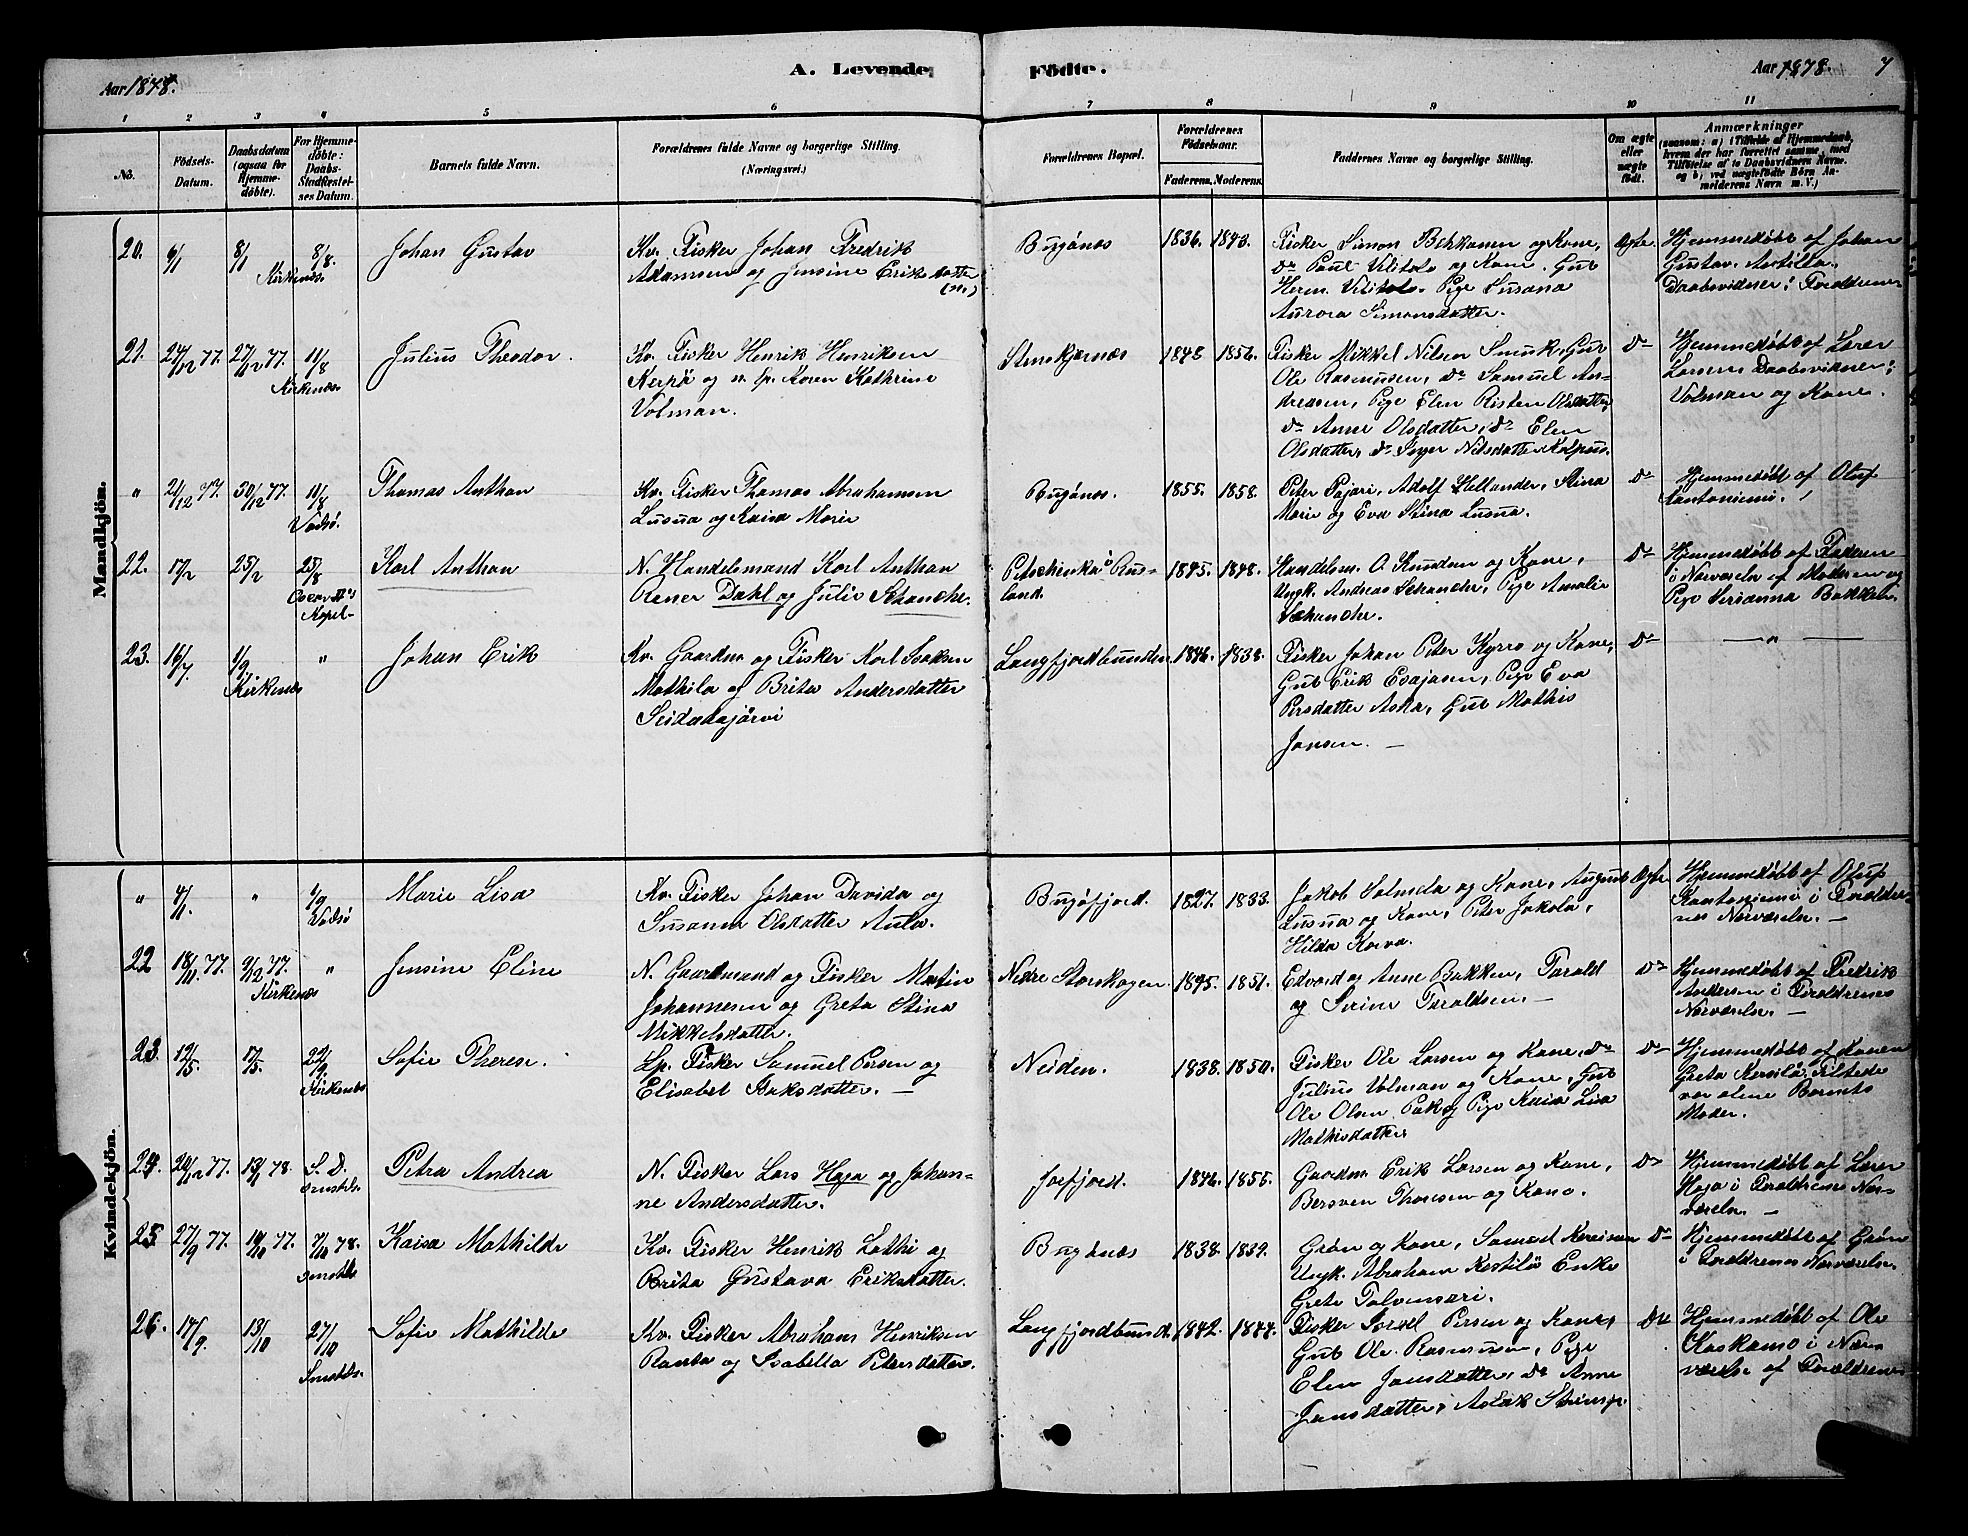 Aar 1878.
A. Levende
Födte.
Aar 1878.
7
1 2 3 4 5 6 7 8 9 10 11
No.
Födsels-
Datum.
Daabsdatum
(ogsaa for
Hjemme-
döbte).
For Hjemme-
döbte:
Daabs-
Stadfæstel-
ses Datum.
Barnets fulde Navn.
Forældrenes fulde Navne og borgerlige Stilling.
(Næringsvei.)
Forældrenes Bopæl.
Forældrenes
Födselsaar.
Faderens. Moderens.
Faddernes Navne og borgerlige Stilling.
Om ægte
eller
uægte
födt.
Anmærkninger
(saasom: a) i Tilfælde af Hjemmedaab,
hvem der har forrettet samme, med
Tilföielse af to Daabsvidners Navne.
og b) ved uægtefödte Börn An-
melderens Navn m. V.)
Mandkjön.
20. 6/1 8/1 Kirkenæs 8/8. Johan Gustav
Kv. Fisker Johan Fredrik
Adamsen og Jensine Eriksdatter
(n.)
Bugönæs 1836. 1843.
Fisker Simon Bekkanen og Kone,
do Paul Vilitolo og Kone. Gut
Herm. Vilitolo. Pige Susana
Aurora Simonsdatter.
Ægte.
Hjemmedöbt af Johan
Gustav. Antilla.
Daabsvidner: Forældrene
21. 24/12 77. 27/12 77. Kirkenæs 11/8 Julius Theodor.
Kv. Fisker Henrik Henriksen
Kerpö og n. lp. Karen Kathrine
Volman.
Stenskjærnæs 1848 1856.
Fisker Mikkel Nilsen Smuk, Gut
Ole Rasmussen, do Samuel An-
dreasen, Pige Elen Risten Olsdatter
do Anne Olsdatter, do Elen
Olsdatter, do Inger Nilsdatter Kalpus.
do
Hjemmedöbt af Lærer
Larsen. Daabsvidner:
Volman og Kone.
" 21/12 77. 30/12 77. 11/8 Vadsö. Thomas Anthon
Kv. Fisker Thomas Abrahamsen
Lusua og Kaisa Marie
Bugönæs. 1855. 1858.
Peter Pajari, Adolf Hellander, Stina
Marie og Eva Stina Lusua.
do
Hjemmedöbt af Oluf
Kantoniemi.
22. 17/2 25/2 25/8 Kapel- Karl Anthon
N. Handelsmand Karl Anthon
Rener Dahl og Julie Schanche.
Petschenka i Rus-
land. 1845. 1848.
Handelsm. O Knudsen og Kone,
Ungk. Andreas Schanche, Pige Amalie
Schanche.
do
Hjemmedöbt af Faderen
i Nærværelse af Moderen og
Pige Serianna Bakken.
23. 16/7 1/9 Kirkenæs " Johan Erik
Kv. Gaardm. og Fisker Karl Isaksen
Mathila og Brita Andersdatter
Seidadajärvi
Langfjordbunden 1846. 1838.
Fisker Johan Peter Kyrro og Kone,
Gut Erik Esajasen, Pige Eva
Persdatter Aska, Gut Mathis
Jansen. —
do
— " —
Kvindekjön.
" 4/1. " 1/9 Vadsö Marie Lisa
Kv. Fisker Johan Davida og
Susanna Olsdatter Aula.
Bugöfjord. 1827. 1833.
Jakob Salmela og Kone, August
Lusua og Kone, Peter Jakola,
Hilda Korva.
Ægte
Hjemmedöbt af Oluf
Kantoniemi i Foraldre-
nes Nærværelse. —
22 18/11 77. 9/12 77. Kirkenæs " Jensine Eline
N. Gaardmand og Fisker Martin
Johannesen og Greta Stina
Mikkelsdatter.
Nedre Storskogen. 1845. 1851.
Edvard og Anne Bakken, Tarald
og Serine Taraldsen. —
do
Hjemmedöbt af Fredrik
Andersen i Foraldrenes
Nærværelse. —
23. 12/5 17/5. 22/9. Kirkenæs Sofie Therese.
Lp. Fisker Samuel Persen og
Elisabet Isaksdatter. —
Neiden. 1838. 1850.
Fisker Ole Larsen og Kone, do
Julius Volman og Kone, Gut
Ole Olsen Pak og Pige Kaisa Lisa
Mathisdatter
do
Hjemmedöbt af Konen
Greta Kersilö, Tilstede
var alene Barnets
Moder.
24. 20/12 77. 13/1 78. S. D. Petra Andrea
N. Fisker Lars Haga og Johan-
ne Andersdatter.
Jarfjord. 1846. 1855.
Gaardm. Erik Larsen og Kone,
Bersven Thoresen og Kone.
do
Hjemmedöbt af Lærer
Haga i Foraldrenes Nær-
værelse. —
25 27/9 77. 14/10 77. 7/10 78. Kaisa Mathilde
Kv. Fisker Henrik Lathi og
Brita Gustava Eriksdatter.
Bugönæs 1838. 1839.
Grön og Kone,
Ungk. Abraham Kestilö Enke
Greta Talvensari.
do
Hjemmedöbt af Grön
i Foraldrenes Nærværelse.
26. 17/9. 13/10 27/10 Sofie Mathilde
Kv. Fisker Abraham Henriksen
Ranta og Isabella Petersdatter.
Langfjordbund. 1842. 1844.
Fisker Persen og Kone,
Gut Ole Rasmussen, Pige
Elen Jansdatter, do Anne
Jansdatter, Aslak
do
Hjemmedöbt af Ole
Kaskamo i Nær-
værelse af Foraldrene